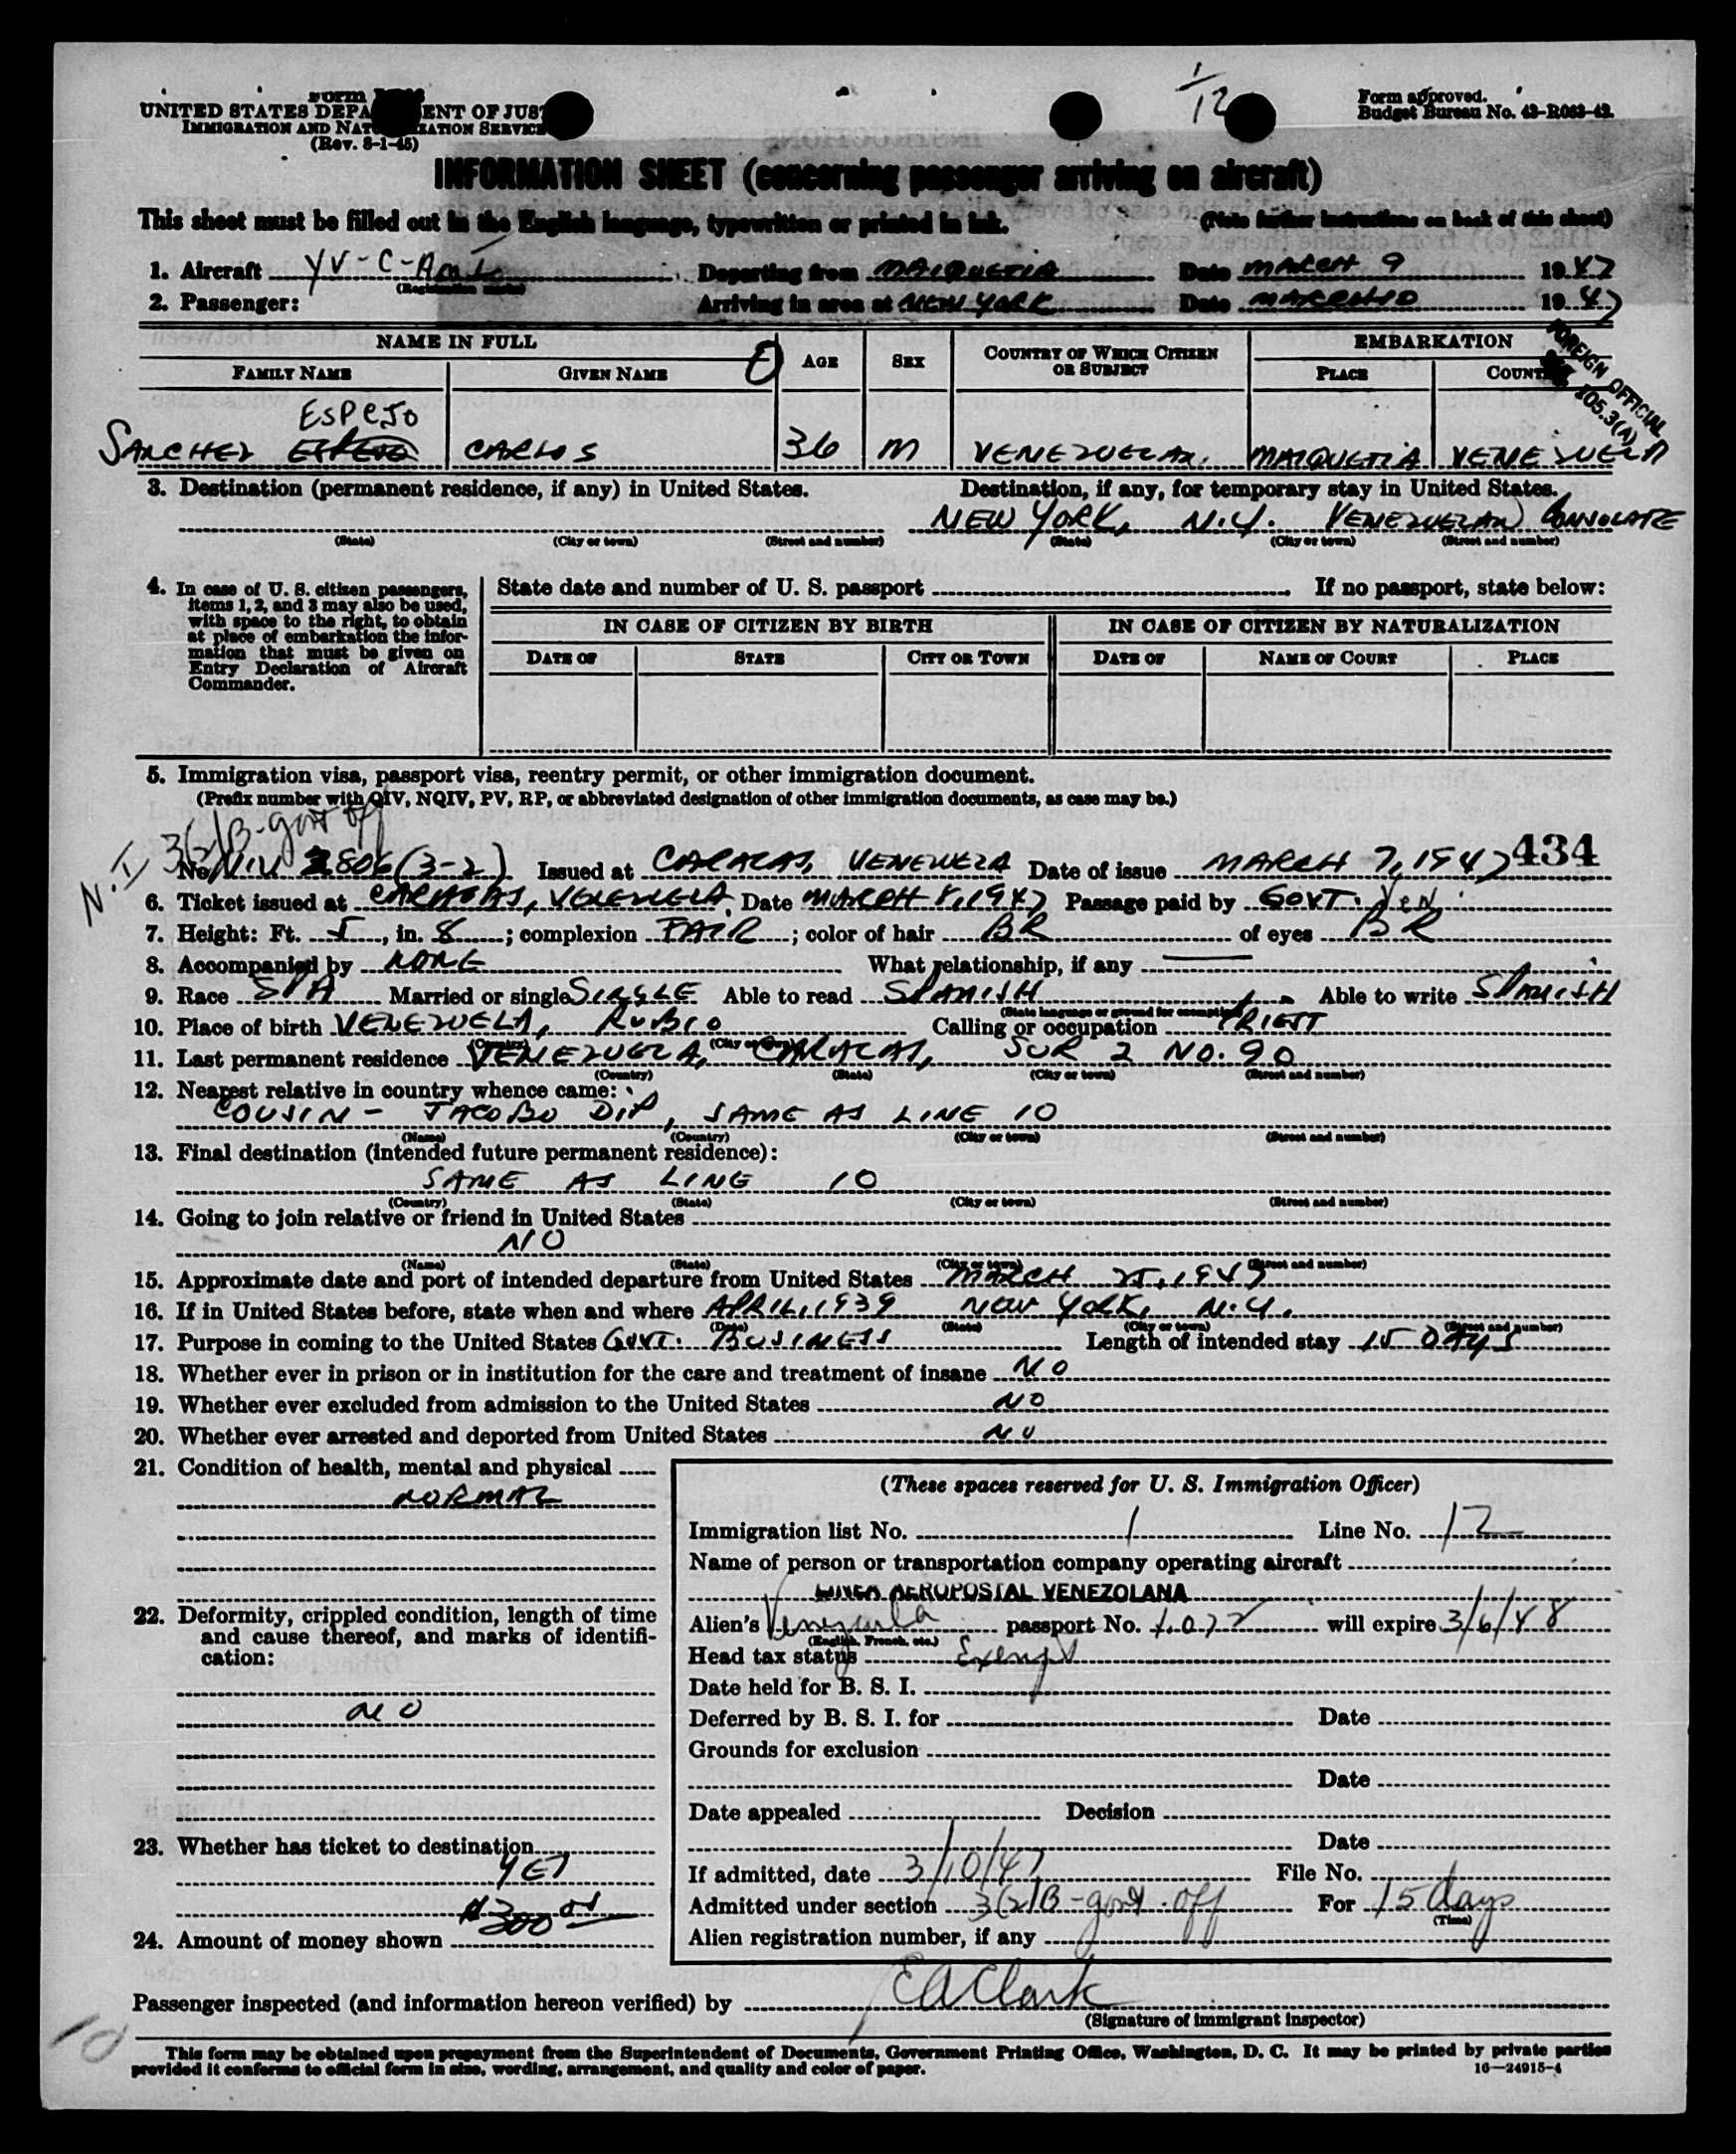 1/12
Form
UNITED STATES DEPA ENT OF JUST
IMMIGRATION AND NAT ZATION SERVICE
(Rev. 8-1-45)
Form approved.
Budget Bureau No. 43-R063-42.
INFORMATION SHEET (concerning passenger arriving on aircraft)
This sheet must be filled out in the English language, typewritten or printed in ink. (Note further instructions on back of this sheet)
1. Aircraft YV-C-AMI Departing from MAIQUETIA Date MARCH 9 1947
(Registration marks)
2. Passenger: Arriving in area at NEW YORK Date MARCH 10 1947
NAME IN FULL AGE SEX COUNTRY OF WHICH CITIZEN OR SUBJECT EMBARKATION
FAMILY NAME GIVEN NAME PLACE COUNT
FOREIGN OFFICIAL
105.3(A)
ESPEJO
SANCHEZ CARLOS 36 M VENEZUELAN. MAIQUETIA VENEZUELA
3. Destination (permanent residence, if any) in United States. Destination, if any, for temporary stay in United States.
NEW YORK, N.Y. VENEZUELAN CONSOLATE
(State) (City or town) (Street and number) (State) (City or town) (Street and number)
4. In case of U. S. citizen passengers, items 1, 2, and 3 may also be used, with space to the right, to obtain at place of embarkation the information that must be given on Entry Declaration of Aircraft Commander.
State date and number of U. S. passport If no passport, state below:
IN CASE OF CITIZEN BY BIRTH IN CASE OF CITIZEN BY NATURALIZATION
DATE OF STATE CITY OR TOWN DATE OF NAME OF COURT PLACE
5. Immigration visa, passport visa, reentry permit, or other immigration document.
(Prefix number with QIV, NQIV, PV, RP, or abbreviated designation of other immigration documents, as case may be.)
N.I 3(2)B-govt off
No. NIV 2806(3-2) Issued at CARACAS, VENEZUELA Date of issue MARCH 7, 1947 434
6. Ticket issued at CARACAS, VENEZUELA Date MARCH 8, 1947 Passage paid by GOVT. Ven
7. Height: Ft. 5, in. 8; complexion FAIR; color of hair BR of eyes BR
8. Accompanied by NONE What relationship, if any
9. Race SPA Married or single SINGLE Able to read SPANISH Able to write SPANISH
(State language or ground for exemption)
10. Place of birth VENEZUELA, RUBIO Calling or occupation PRIEST
(Country) (City or town)
11. Last permanent residence VENEZUELA, CARACAS, SUR 2 NO. 90
(Country) (State) (City or town) (Street and number)
12. Nearest relative in country whence came:
COUSIN - JACOBO DIP, SAME AS LINE 10
(Name) (Country) (City or town) (Street and number)
13. Final destination (intended future permanent residence):
SAME AS LINE 10
(Country) (State) (City or town) (Street and number)
14. Going to join relative or friend in United States
NO
(Name) (State) (City or town) (Street and number)
15. Approximate date and port of intended departure from United States MARCH 25, 1947
16. If in United States before, state when and where APRIL, 1939 NEW YORK, N.Y.
(Date) (State) (City or town) (Street and number)
17. Purpose in coming to the United States GOVT. BUSINESS Length of intended stay 15 DAYS
18. Whether ever in prison or in institution for the care and treatment of insane NO
19. Whether ever excluded from admission to the United States NO
20. Whether ever arrested and deported from United States NO
21. Condition of health, mental and physical
NORMAL
22. Deformity, crippled condition, length of time and cause thereof, and marks of identification:
NO
23. Whether has ticket to destination
YES
$300 00
24. Amount of money shown
(These spaces reserved for U. S. Immigration Officer)
Immigration list No. 1 Line No. 12
Name of person or transportation company operating aircraft
LINEA AEROPOSTAL VENEZOLANA
Alien's Venezuela passport No. 1.072 will expire 3/6/48
(English, French, etc.)
Head tax status Exempt
Date held for B. S. I.
Deferred by B. S. I. for Date
Grounds for exclusion
Date
Date appealed Decision
Date
If admitted, date 3/10/47 File No.
Admitted under section 3(2)B-govt. off For 15 days
(Time)
Alien registration number, if any
Passenger inspected (and information hereon verified) by EAClark
(Signature of immigrant inspector)
10
This form may be obtained upon prepayment from the Superintendent of Documents, Government Printing Office, Washington, D. C. It may be printed by private parties
provided it conforms to official form in size, wording, arrangement, and quality and color of paper. 16—24915-4